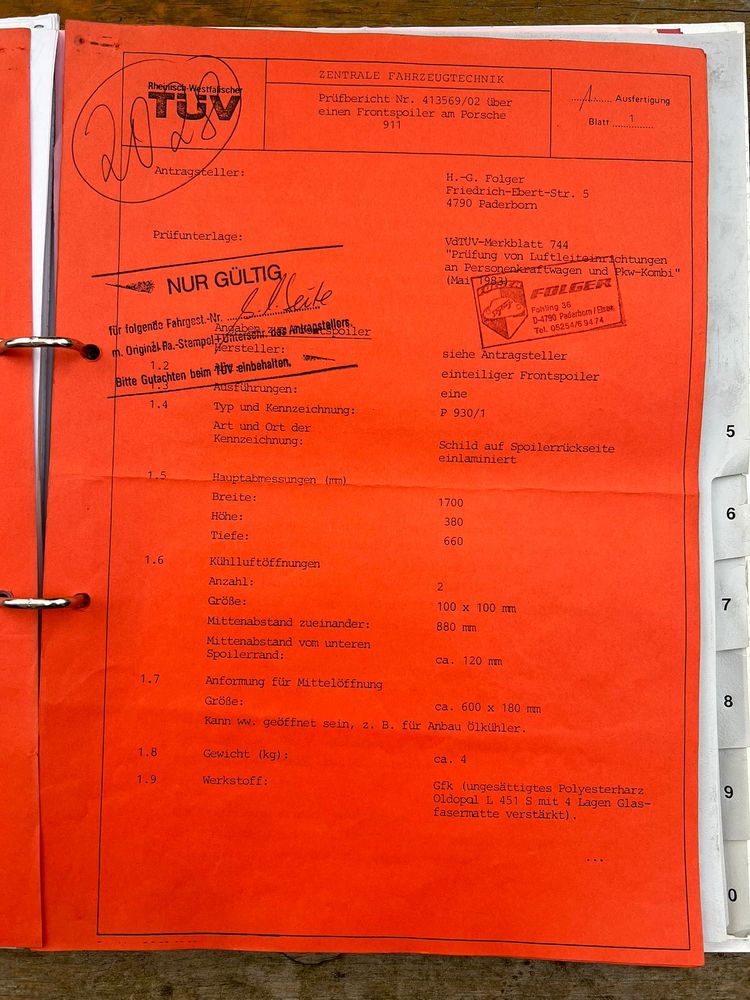 Rheinisch-Westfälischer
TÜV
ZENTRALE FAHRZEUGTECHNIK
Prüfbericht Nr. 413569/02 über
einen Frontspoiler am Porsche
911
1 Ausfertigung
Blatt 1
Antragsteller:
H.-G. Folger
Friedrich-Ebert-Str. 5
4790 Paderborn
Prüfunterlage:
VdTÜV-Merkblatt 744
"Prüfung von Luftleiteinrichtungen
an Personenkraftwagen und Pkw-Kombi"
(Mai 1983)
NUR GÜLTIG
für folgende Fahrgest.-Nr. s. l. Seite
m. Original Fa.-Stempel + Unterschr. des Antragstellers.
Bitte Gutachten beim TÜV einbehalten.
FOLGER
Fohling 36
D-4790 Paderborn / Elsen
Tel. 05254/69474
Angaben zum Frontspoiler
Hersteller: siehe Antragsteller
1.2 einteiliger Frontspoiler
1.3 Ausführungen: eine
1.4 Typ und Kennzeichnung: P 930/1
Art und Ort der
Kennzeichnung: Schild auf Spoilerrückseite
einlaminiert
1.5 Hauptabmessungen (mm)
Breite: 1700
Höhe: 380
Tiefe: 660
1.6 Kühlluftöffnungen
Anzahl: 2
Größe: 100 x 100 mm
Mittenabstand zueinander: 880 mm
Mittenabstand vom unteren
Spoilerrand: ca. 120 mm
1.7 Anformung für Mittelöffnung
Größe: ca. 600 x 180 mm
Kann ww. geöffnet sein, z. B. für Anbau Ölkühler.
1.8 Gewicht (kg): ca. 4
1.9 Werkstoff: Gfk (ungesättigtes Polyesterharz
Oldopal L 451 S mit 4 Lagen Glas-
fasermatte verstärkt).
...
5
6
7
8
9
0